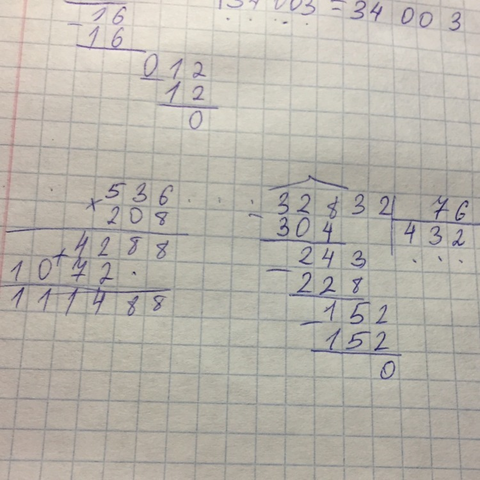 16
- 16
012
12
0
= 34 003
× 536
208
+ 4288
1072.
111488
- 32832 | 76
304 | 432
- 243
228
- 152
152
0